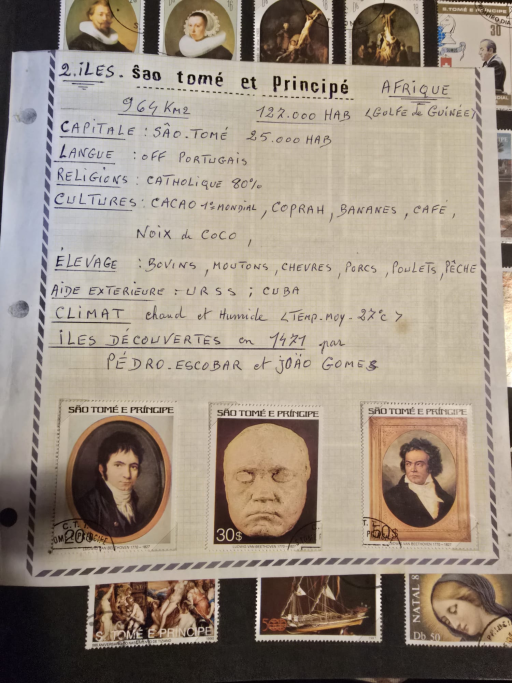 S. TOMÉ E PRÍNCIPE
30
2 îLES. Sao tomé et Principé AFRIQUE
964 KM2 127.000 HAB (GOLFE de GUINÉE)
CAPITALE : SÂO.TOMÉ 25.000 HAB
LANGUE : OFF PORTUGAIS
RELIGIONS : CATHOLIQUE 80%
CULTURES : CACAO 1er MONDIAL, COPRAH, BANANES, CAFÉ,
NOIX de COCO,
ÉLEVAGE : BOVINS, MOUTONS, CHEVRES, PORCS, POULETS, PÊCHE
AIDE EXTERIEURE : URSS ; CUBA
CLIMAT chaud et Humide <TEMP.MOY. 27°C>
îLES DÉCOUVERTES en 1471 par
PÉDRO.ESCOBAR et JOÄO GOMES
SÃO TOMÉ E PRÍNCIPE SÃO TOMÉ E PRÍNCIPE SÃO TOMÉ E PRÍNCIPE
20$ 30$ 50$
S. TOMÉ E PRÍNCIPE
NATAL 8
Db. 50